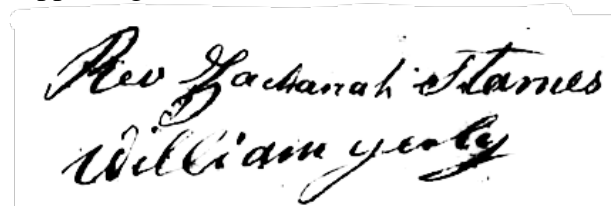 Rev Zachariah Starnes
William Yerly